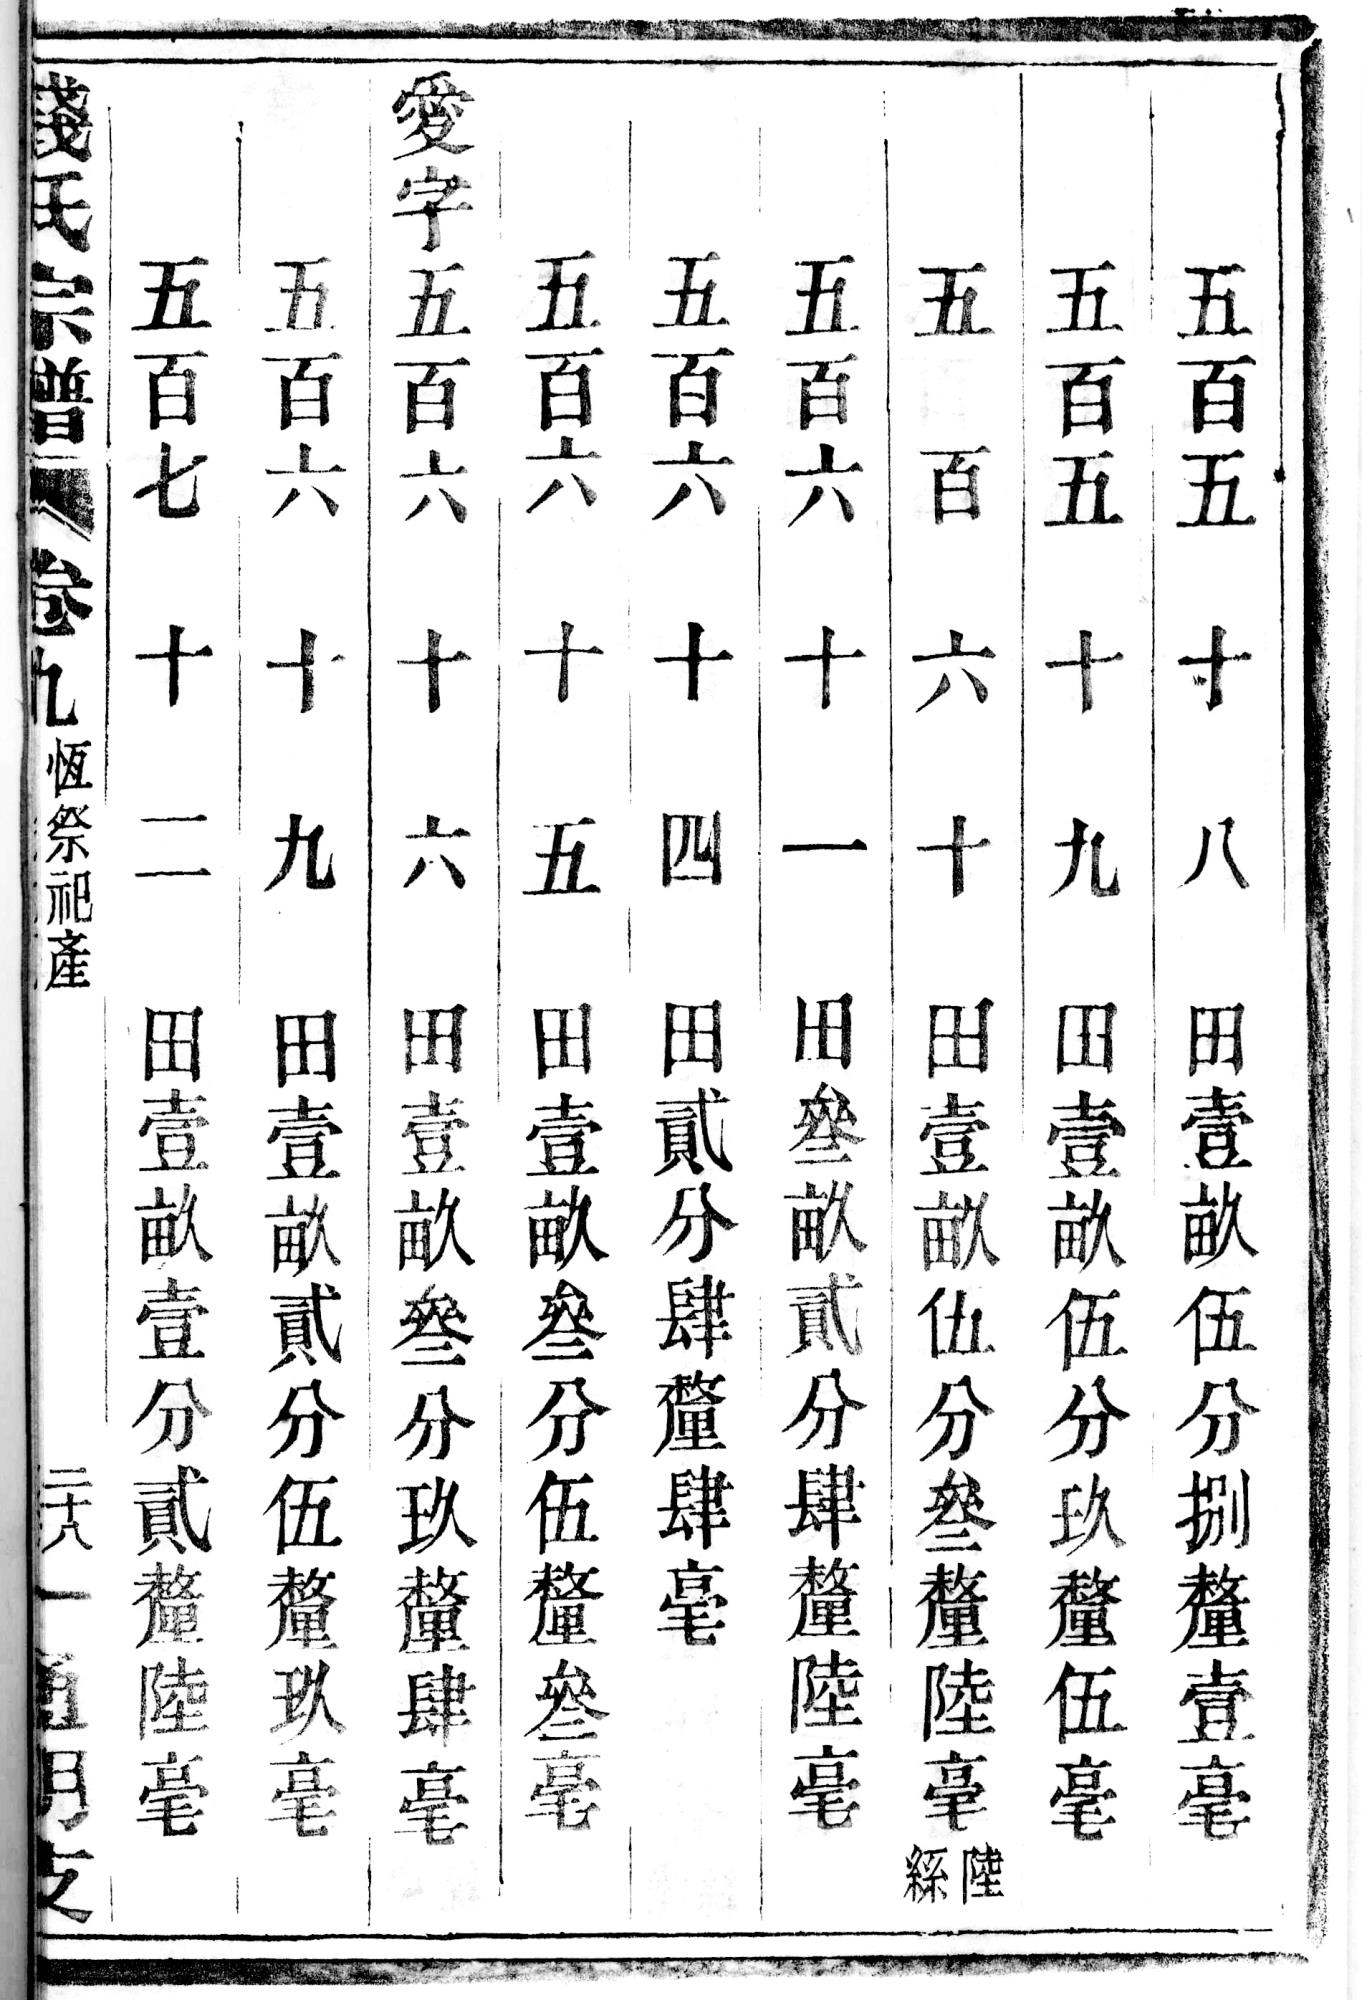 五百五十八 田壹畝伍分捌釐壹毫
五百五十九 田壹畝伍分玖釐伍毫
五百六十 田壹畝伍分叄釐陸毫陸絲
五百六十一 田叄畝貳分肆釐陸毫
五百六十四 田貳分肆釐肆毫
五百六十五 田壹畝叄分伍釐叄毫
愛字五百六十六 田壹畝叄分玖釐肆毫
五百六十九 田壹畝貳分伍釐玖毫
五百七十二 田壹畝壹分貳釐陸毫
錢氏宗譜 卷九 恆祭祀產 二十八 通明支